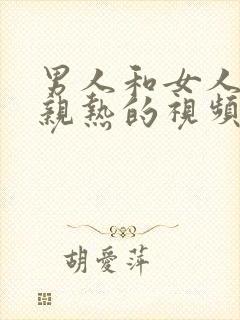 男人和女人
親熱的視頻
胡愛萍